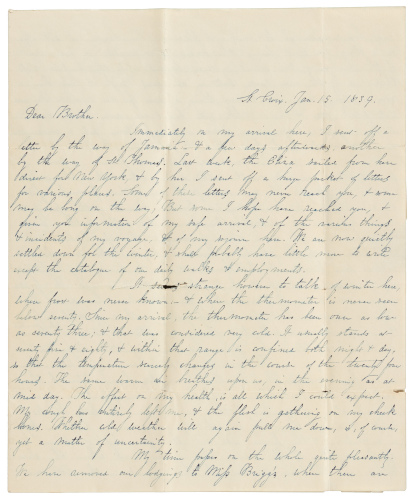 St. Croix. Jan. 15. 1839.
Dear Brother
Immediately on my arrival here, I sent off a
letter by the way of Jamaica - & a few days afterwards another
by the way of St Thomas. Last week the Eliza sailed from here
direct for New York & by her I sent off a huge packet of letters
for various places. Some of these letters may never reach you, & some
may be long on the way. One I hope have reached you, &
given you information of my safe arrival, & of the various things
& incidents of my voyage, & of my sojourn here. We are now quietly
settled down for the winter, & shall probably have little more to write
except the catalogue of our daily walks & employments.
It seems strange however to talk of winter here,
where frost was never known - & where the thermometer is never seen
below seventy. Since my arrival, the thermometer has been once as low
as seventy three; & that was considered very cold. It usually stands at
seventy five & eighty, & within that range is confined both night & day,
so that the temperature scarcely changes in the course of the twenty four
hours. The same warm air breathes upon us, in the evening as at
mid day. The effect on my health is all which I could expect.
My cough has entirely left me, & the flesh is gathering on my cheek
bones. Whether cold weather will again pull me down, is, of course,
yet a matter of uncertainty.
My time passes on the whole quite pleasantly.
We have removed our lodgings to Miss Briggs, where there are